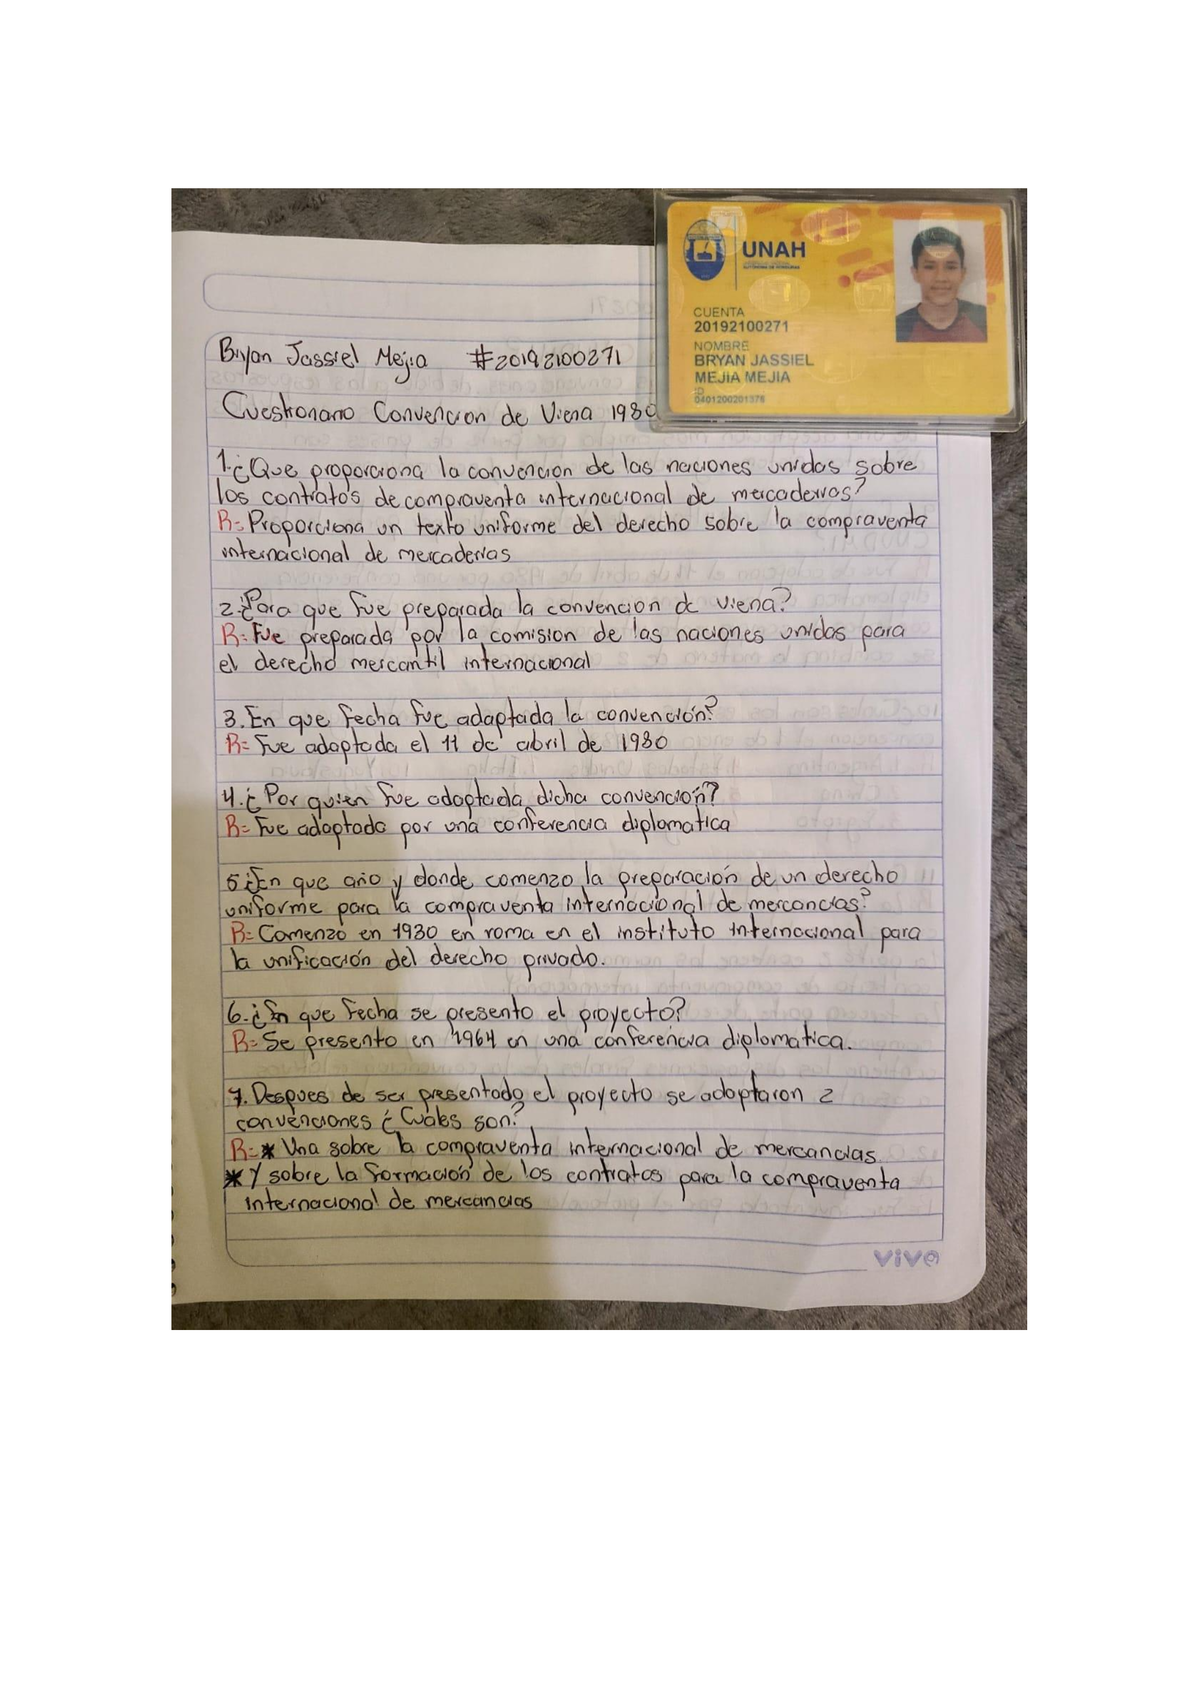 UNAH
CUENTA
20192100271
NOMBRE
BRYAN JASSIEL
MEJIA MEJIA
ID
0401200201376
Bryan Jassiel Mejia #20192100271
Cuestionario Convencion de Viena 1980
1.¿Que proporciona la convencion de las naciones unidas sobre
los contratos de compraventa internacional de mercaderias?
R= Proporciona un texto uniforme del derecho sobre la compraventa
internacional de mercaderias
2.¿Para que fue preparada la convencion de viena?
R= Fue preparada por la comision de las naciones unidas para
el derecho mercantil internacional
3. En que fecha fue adaptada la convención?
R= Fue adoptada el 11 de abril de 1980
4.¿Por quien fue adoptada dicha convención?
R= Fue adoptada por una conferencia diplomatica
5.¿En que año y donde comenzo la preparación de un derecho
uniforme para la compraventa internacional de mercancias?
R= Comenzó en 1930 en roma en el instituto internacional para
la unificación del derecho privado.
6.¿En que fecha se presento el proyecto?
R= Se presento en 1964 en una conferencia diplomatica.
7. Despues de ser presentado el proyecto se adoptaron 2
convenciones ¿Cuales son?
R= * Una sobre la compraventa internacional de mercancias
* Y sobre la formación de los contratos para la compraventa
internacional de mercancias
vivo